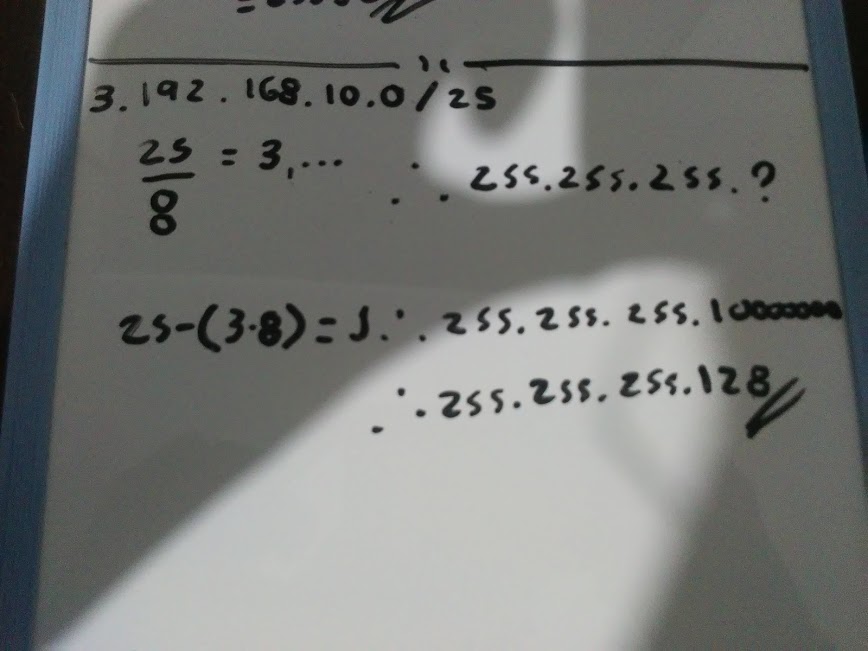 3. 192.168.10.0/25
25/8 = 3,... ∴ 255.255.255.?
25-(3·8)=1 ∴ 255.255.255.10000000
∴ 255.255.255.128